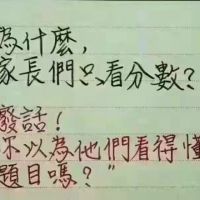 為什麼,
家長們只看分數?
廢話!
你以為他們看得懂
題目嗎?"